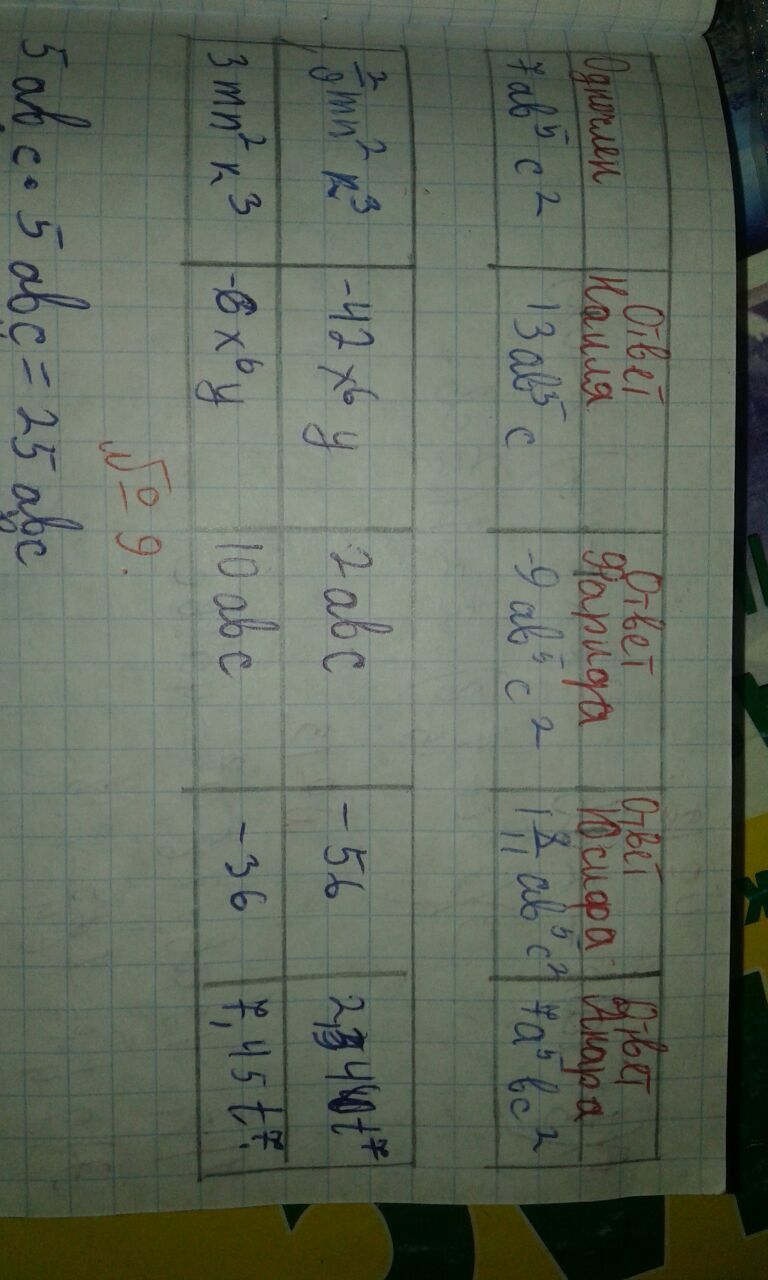 Одночлен Ответ Наиля Ответ Фарида Ответ Юсифа Ответ Анара
7ab⁵c² 13ab⁵c -9ab⁵c² 1 8/11 ab⁵c² 7a⁵bc²
mn²k³ -42x⁶y 2abc -5b
3mn²k³ -6x⁶y 10abc -3b 7,45t⁷
№ 9.
5abc · 5abc = 25abc